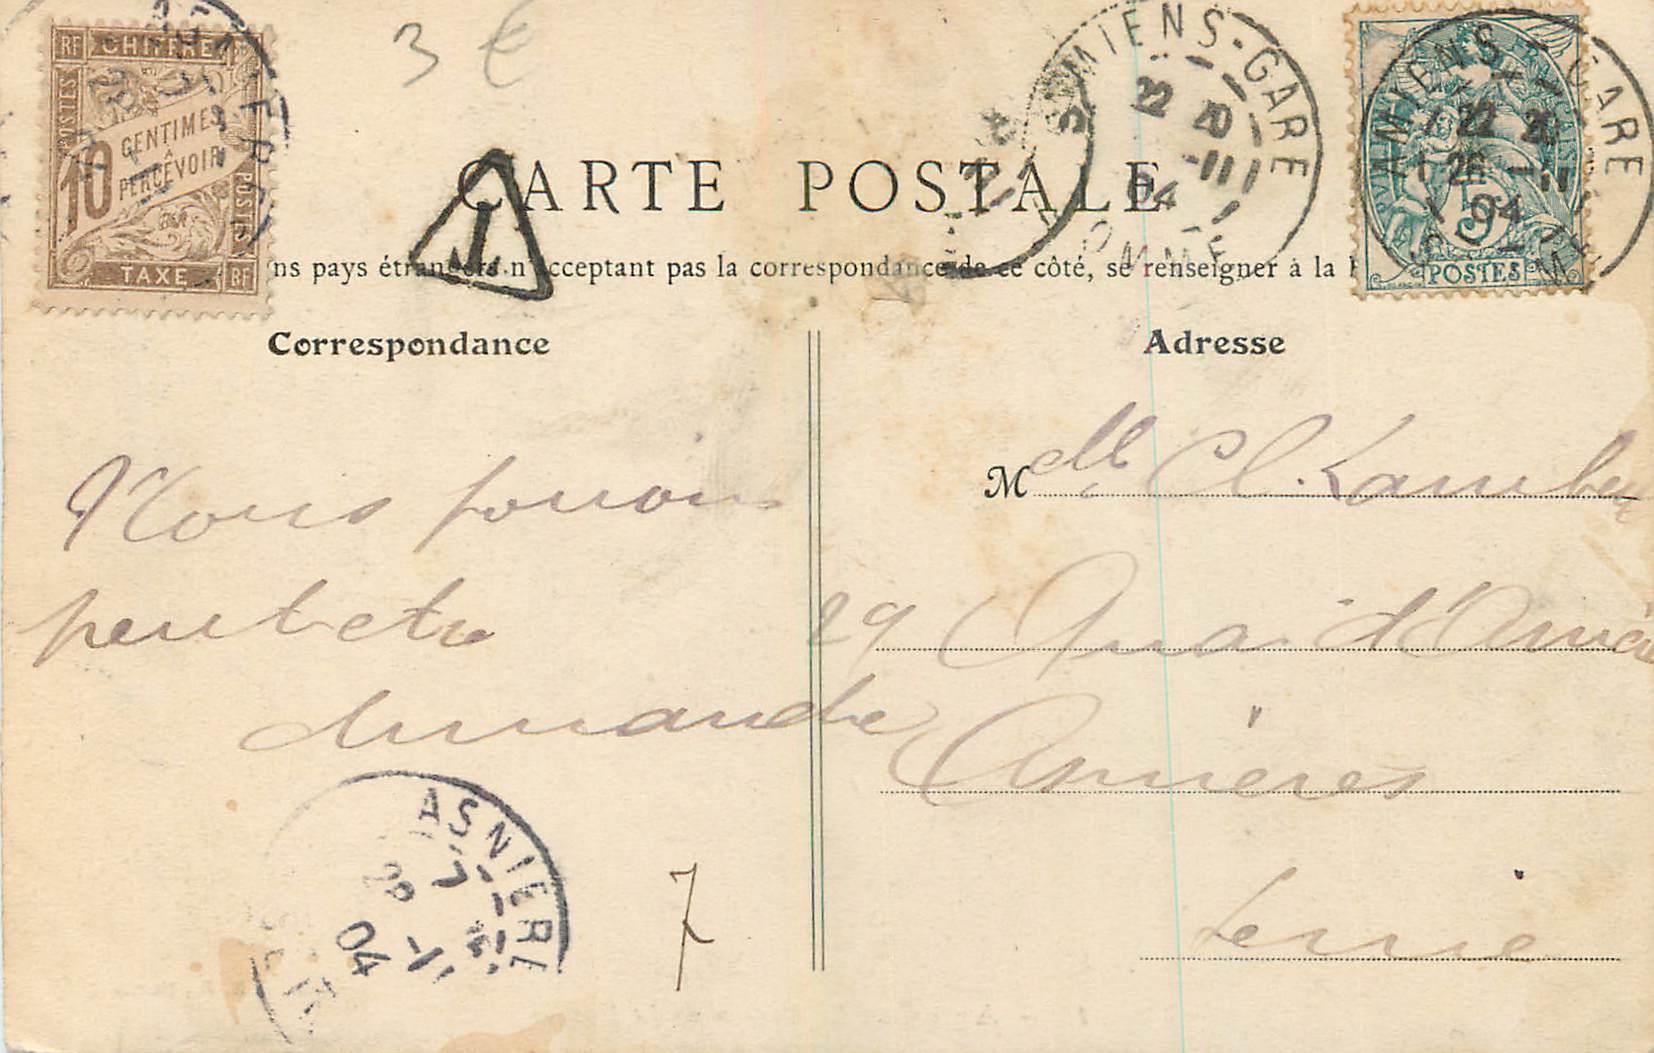 3 €
RF CHIFFRE
POSTES
10 CENTIMES
À
PERCEVOIR
POSTES
TAXE RF
T
AMIENS-GARE
22 20
-11
04
SOMME
AMIENS-GARE
22 20
26 -11
04
5
POSTES
CARTE POSTALE
ns pays étrangers n'acceptant pas la correspondance de ce côté, se renseigner à la
Correspondance
Adresse
Nous
peut etre
dimanche
M elle Cl. Lambert
29 Quai d'Asnières
Asnières
Seine
ASNIERE
7
28 -11
04
7